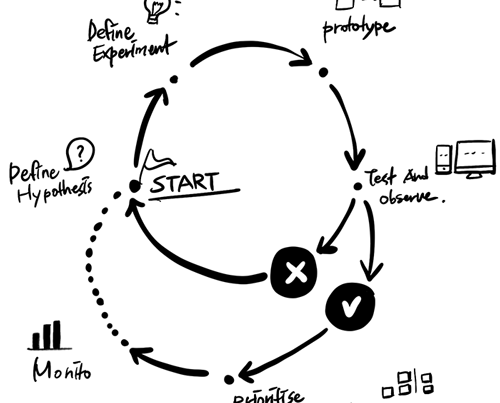 Define
Experiment
prototype
Define
Hypothesis
?
START
Test And
observe.
Monito
Prioritise